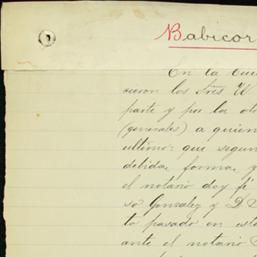 Babicor
En la Ciu
rieron los Sres W
parte y por la ot
(generales) a quien
ultimo: que segun
debida, forma, y
el notario doy fe
so Gonzalez y D
to pasado en este
ante el notario